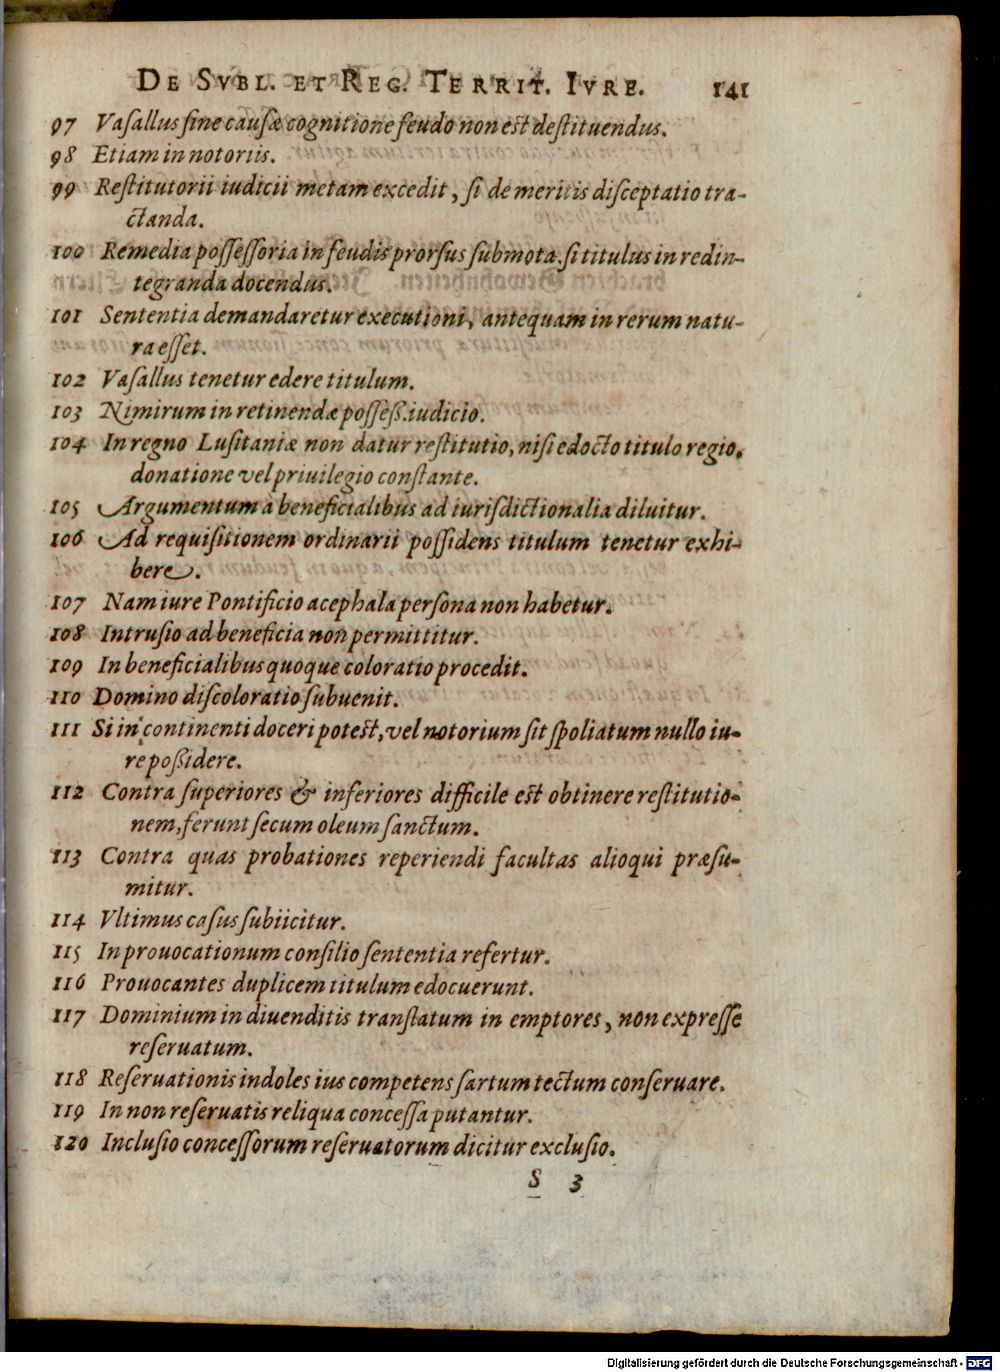 DE SVBL. ET REG. TERRIT. IVRE. 141
97 Vaſallus ſine cauſæ cognitione feudo non eſt deſtituendus.
98 Etiam in notoriis.
99 Reſtitutorii iudicii metam excedit, ſi de meritis diſceptatio tra-
ctanda.
100 Remedia poſſeſſoria in feudis prorſus ſubmota. ſi titulus in redin-
tegranda docendus.
101 Sententia demandaretur executioni, antequam in rerum natu-
ra eſſet.
102 Vaſallus tenetur edere titulum.
103 Nimirum in retinendæ poſſeß. iudicio.
104 In regno Luſitaniæ non datur reſtitutio, niſi edocto titulo regio,
donatione vel priuilegio conſtante.
105 Argumentum à beneficialibus ad iuriſdictionalia diluitur.
106 Ad requiſitionem ordinarii poſſidens titulum tenetur exhi-
bere.
107 Nam iure Pontificio acephala perſona non habetur.
108 Intruſio ad beneficia non permittitur.
109 In beneficialibus quoque coloratio procedit.
110 Domino diſcoloratio ſubuenit.
111 Si in continenti doceri poteſt, vel notorium ſit ſpoliatum nullo iu-
re poßidere.
112 Contra ſuperiores & inferiores difficile eſt obtinere reſtitutio-
nem, ferunt ſecum oleum ſanctum.
113 Contra quas probationes reperiendi facultas alioqui præſu-
mitur.
114 Vltimus caſus ſubiicitur.
115 In prouocationum conſilio ſententia refertur.
116 Prouocantes duplicem titulum edocuerunt.
117 Dominium in diuenditis tranſlatum in emptores, non expreſſe
reſeruatum.
118 Reſeruationis indoles ius competens ſartum tectum conſeruare.
119 In non reſeruatis reliqua conceſſa putantur.
120 Incluſio conceſſorum reſeruatorum dicitur excluſio.
S 3
Digitalisierung gefördert durch die Deutsche Forschungsgemeinschaft - DFG